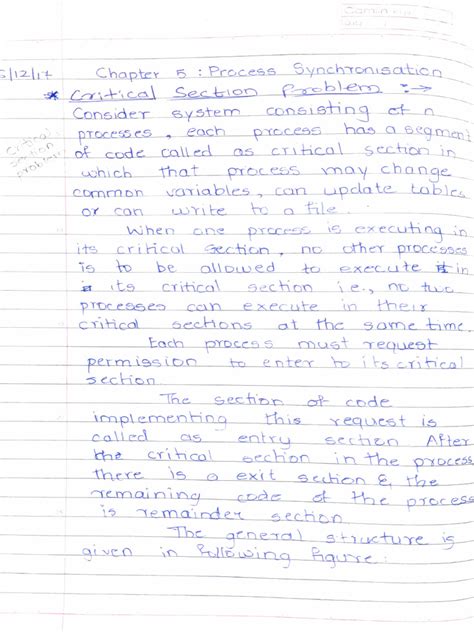 5/12/17 Chapter 5 : Process Synchronisation
* Critical Section Problem :→
Consider system consisting of n
processes, each process has a segment
Critical section problem
of code called as critical section in
which that process may change
common variables, can update tables
or can write to a file.
When one process is executing in
its critical section, no other processes
is to be allowed to execute in
its critical section i.e., no two
processes can execute in their
critical sections at the same time.
Each process must request
permission to enter to its critical
section
The section of code
implementing this request is
called as entry section After
the critical section in the process
there is a exit section & the
remaining code of the process
is remainder section
The general structure is
given in following figure: